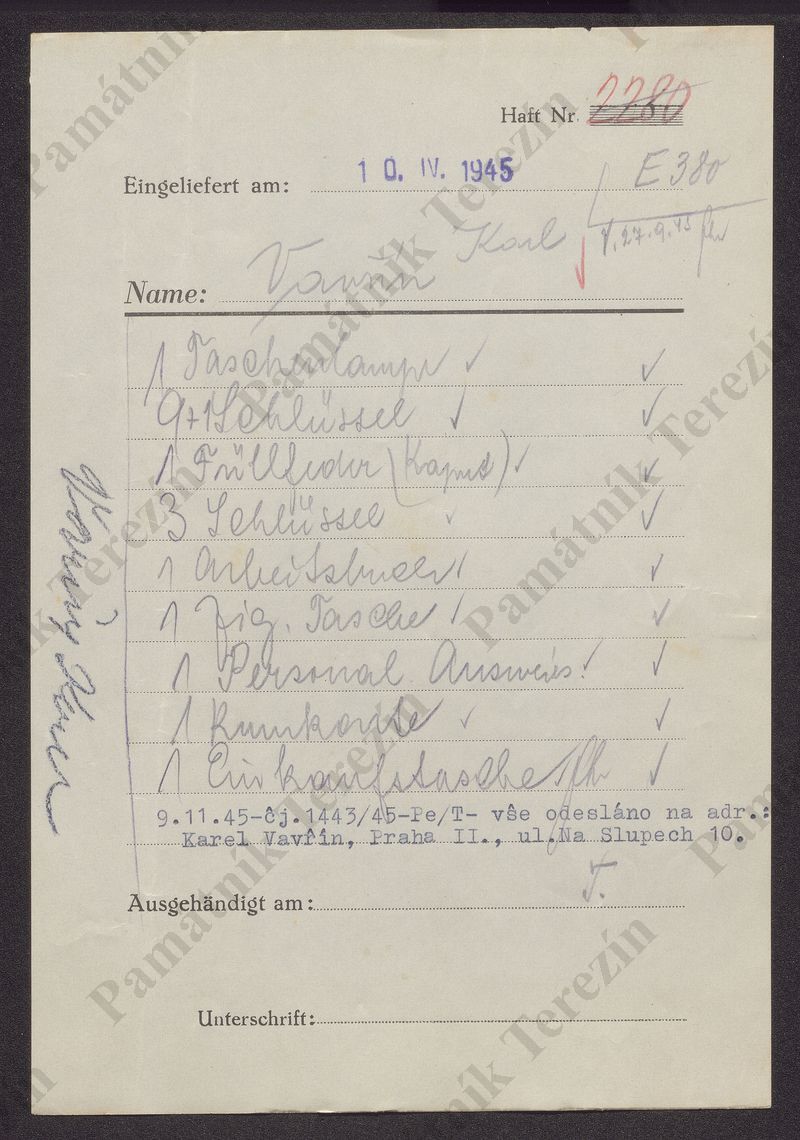 Haft Nr. 2280
E 380
Eingeliefert am: 10. IV. 1945
V. 27.9.45
Name: Vavřin Karl
1 Taschenlampe ✓ ✓
9+1 Schlüssel ✓ ✓
1 Füllfeder (Kaput) ✓ ✓
3 Schlüssel ✓ ✓
1 Arbeitsbuch ✓ ✓
1 Zig. Tasche ✓ ✓
1 Personal Ausweis. ✓ ✓
1 ✓ ✓
1 Einkaufstasche ✓
9.11.45-čj.1443/45-Pe/T- vše odesláno na adr.:
Karel Vavřín, Praha II., ul.Na Slupech 10.
T.
Ausgehändigt am:
Unterschrift:
Památník Terezín